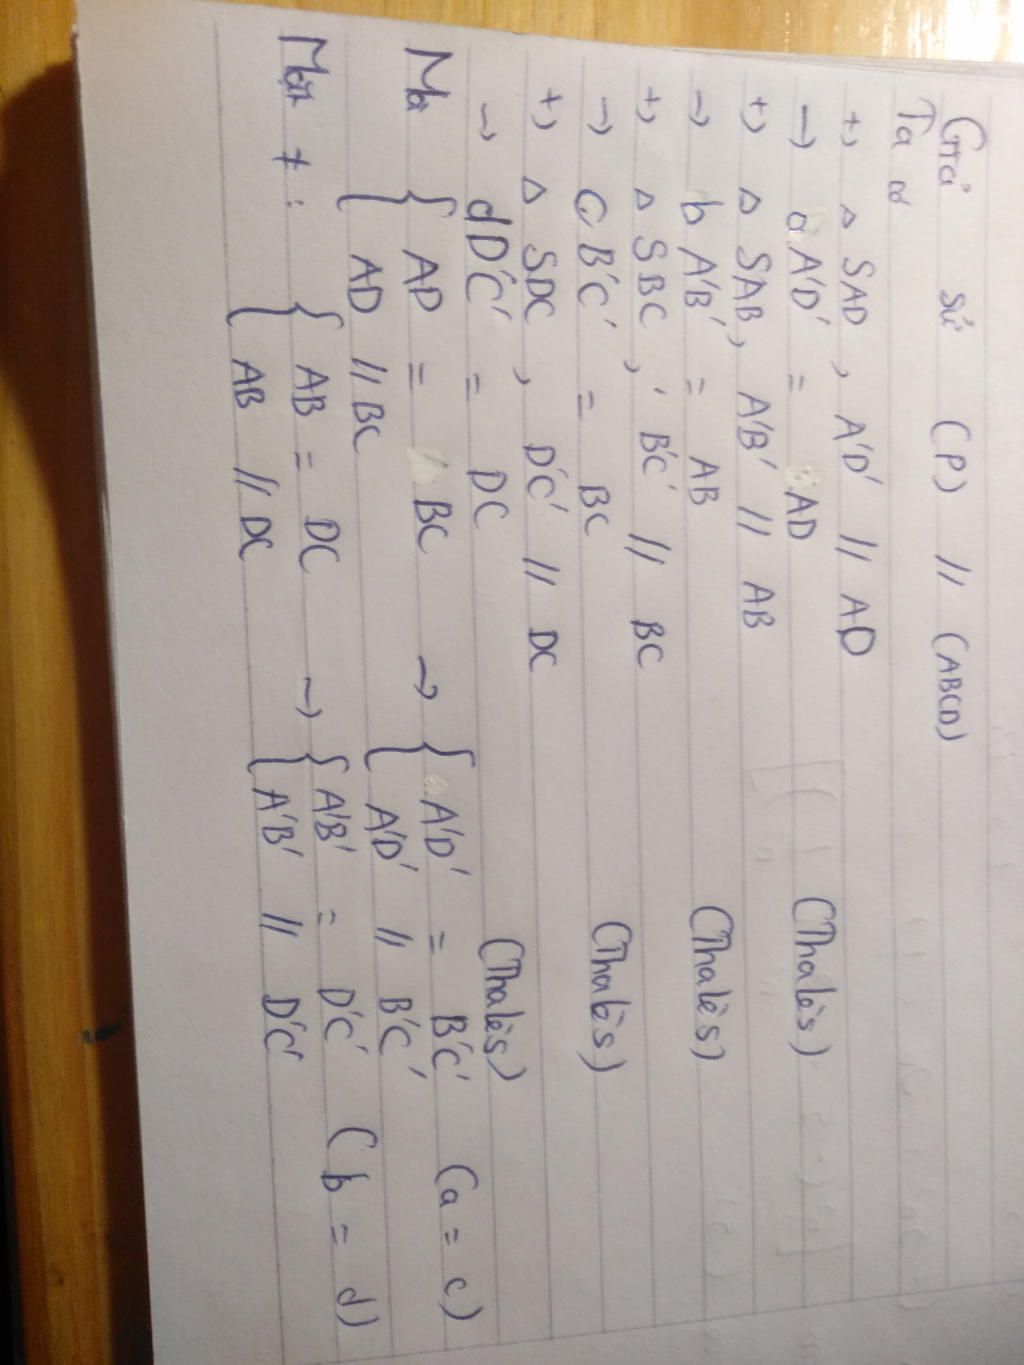 Giả sử (P) // (ABCD)
Ta có
+) Δ SAD, A'D' // AD
→ a A'D' = AD (Thalès)
+) Δ SAB, A'B' // AB
→ b A'B' = AB (Thalès)
+) Δ SBC, B'C' // BC
→ c B'C' = BC (Thalès)
+) Δ SDC, D'C' // DC
→ d D'C' = DC (Thalès)
Mà { AD = BC → { A'D' = B'C' (a = c)
{ AD // BC { A'D' // B'C'
≠ : { AB = DC → { A'B' = D'C' (b = d)
{ AB // DC { A'B' // D'C'